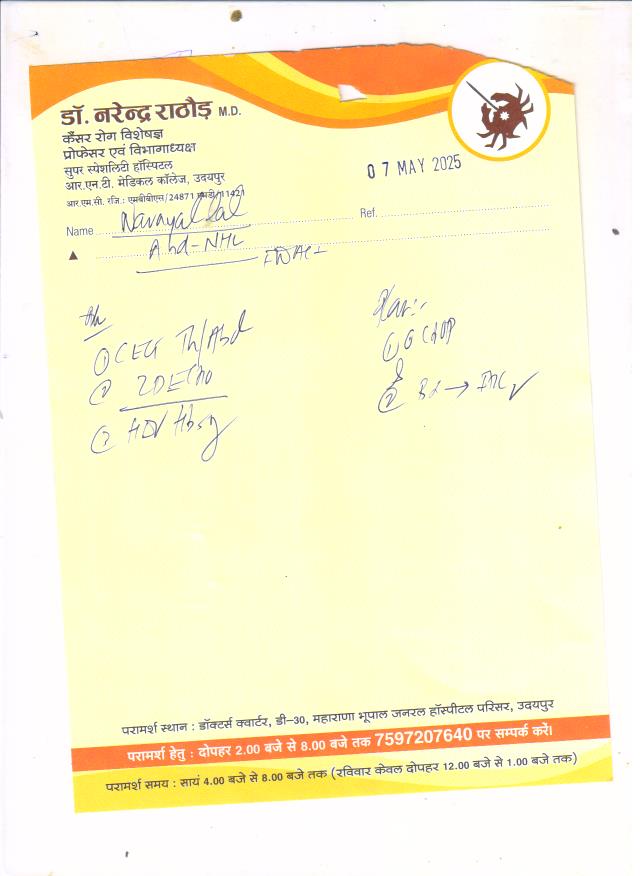 डॉ. नरेन्द्र राठौड़ M.D.
कैंसर रोग विशेषज्ञ
प्रोफेसर एवं विभागाध्यक्ष
सुपर स्पेशलिटी हॉस्पिटल
आर.एन.टी. मेडिकल कॉलेज, उदयपुर
आर.एम.सी. रजि.: एमबीबीएस/24871
07 MAY 2025
Name
Ref.
Abd-NHL
① CECT Th/Abd
② 2D ECHO
③ HIV HbsAg
Plan:-
① CHOP
② → IHC
परामर्श स्थान : डॉक्टर्स क्वार्टर, डी-30, महाराणा भूपाल जनरल हॉस्पीटल परिसर, उदयपुर
परामर्श हेतु : दोपहर 2.00 बजे से 8.00 बजे तक 7597207640 पर सम्पर्क करें।
परामर्श समय : सायं 4.00 बजे से 8.00 बजे तक (रविवार केवल दोपहर 12.00 बजे से 1.00 बजे तक)